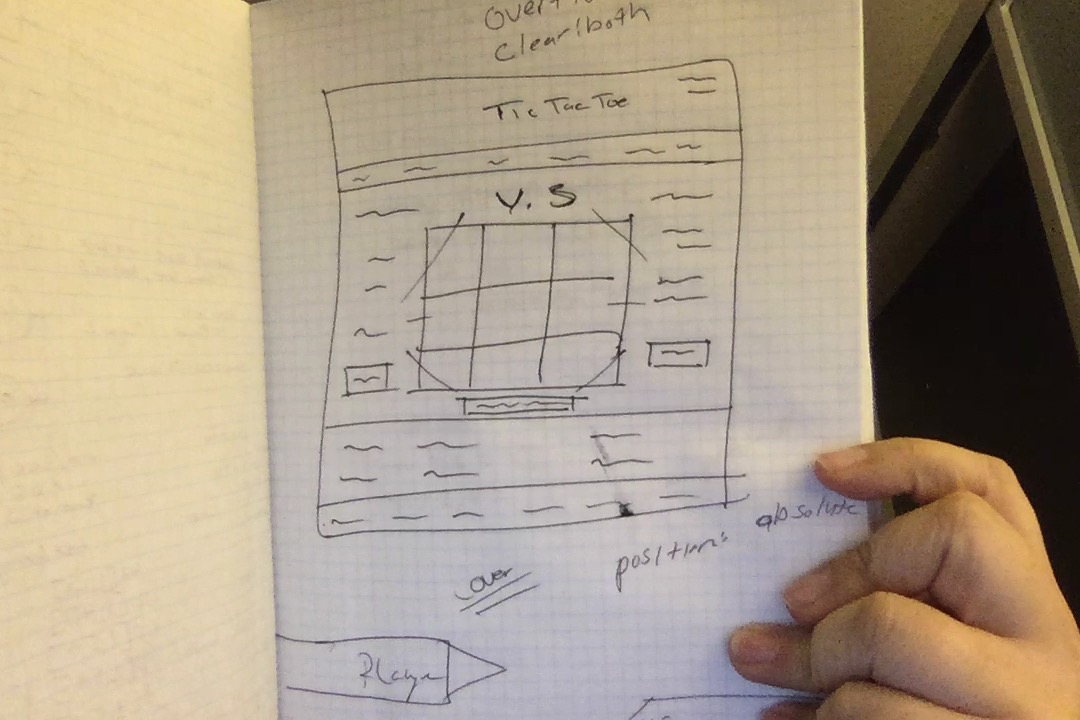 clear:both
Tic Tac Toe
V.S
position: absolute
over
Player